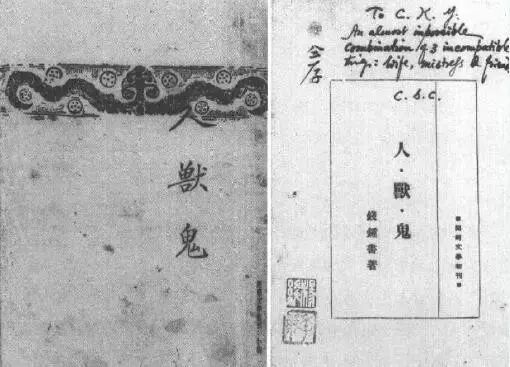 人獸鬼
To C. K. Y.
An almost impossible
combination of 3 incompatible
things: wife, mistress & friend
C. S. C.
人·獸·鬼
錢鍾書著
開明文學新刊